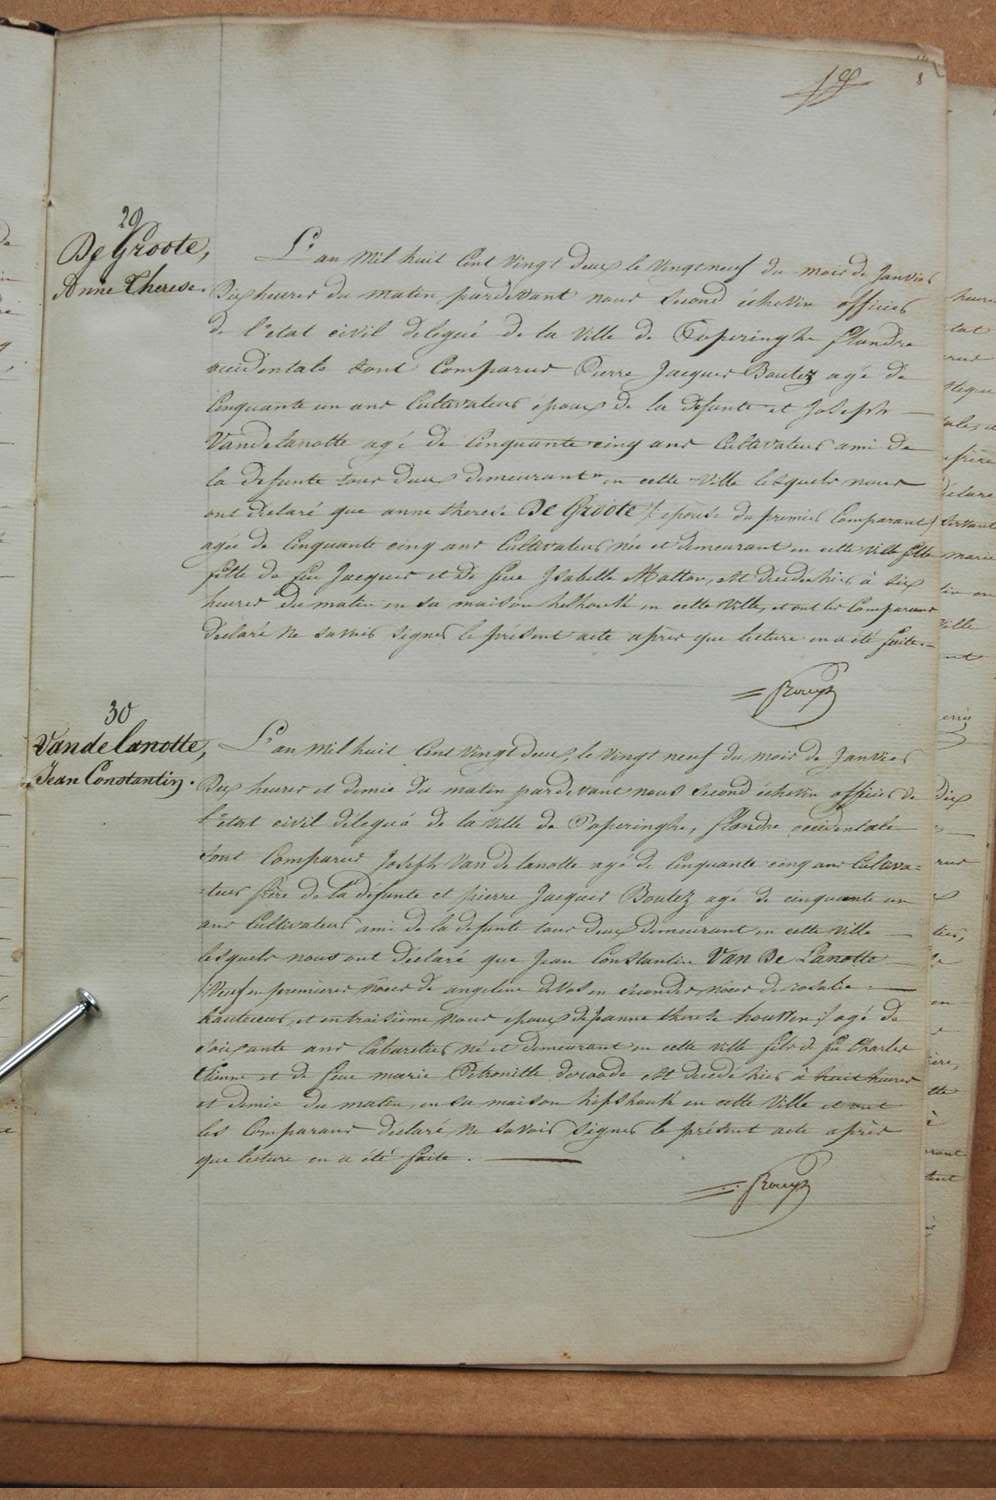 29
De Groote,
Anne Therese.
L'an mil huit Cent vingt deux le vingt neuf du mois de Janvier
Dix heures du matin pardevant nous Second échevin officier
de l'etat civil délegué de la ville de Poperinghe flandre
occidentale sont Comparus Pierre Jacques Boutez agé de
Cinquante un ans Cultivateur époux de la defunte et Joseph
Vandelanotte agé de Cinquante cinq ans Cultivateur ami de
la defunte tous deux demeurant en cette Ville lesquels nous
ont déclaré que anne therese De Groote /: epouse du premier Comparant :/
agée de Cinquante cinq ans Cultivateur née et demeurant en cette ville fille
fille de feu Jacques et de feue Isabelle Matton, est decedée hier à six
heures du matin en sa maison helhouk en cette Ville, et ont les Comparans
déclaré ne savoir signer le présent acte après que lecture en a été faite.
30
Vandelanotte,
Jean Constantin.
L'an mil huit Cent vingt deux, le vingt neuf du mois de Janvier
Dix heures et demie du matin pardevant nous Second échevin officier de
l'etat civil délegué de la ville de Poperinghe, flandre occidentale
sont Comparus Joseph Van de lanotte agé de Cinquante cinq ans Cultiva=
=teur frère de la défunte et pierre Jacques Boutez agé de cinquante un
ans Cultivateur ami de la defunte tous deux demeurant en cette ville
lesquels nous ont déclaré que Jean Constantin Van De Lanotte
/: Veuf en premieres nôces de angeline en secondes nôces de rosalie
et en troisième noces epoux de Jeanne therese houwen :/ agé de
soixante ans Cabaretier né et demeurant en cette ville fils de feu Charles
Etienne et de feue marie Petronille est decedé hier à huit heures
et demie du matin, en sa maison en cette Ville et ont
les Comparans déclaré ne savoir signer le présent acte après
que lecture en a été faite.